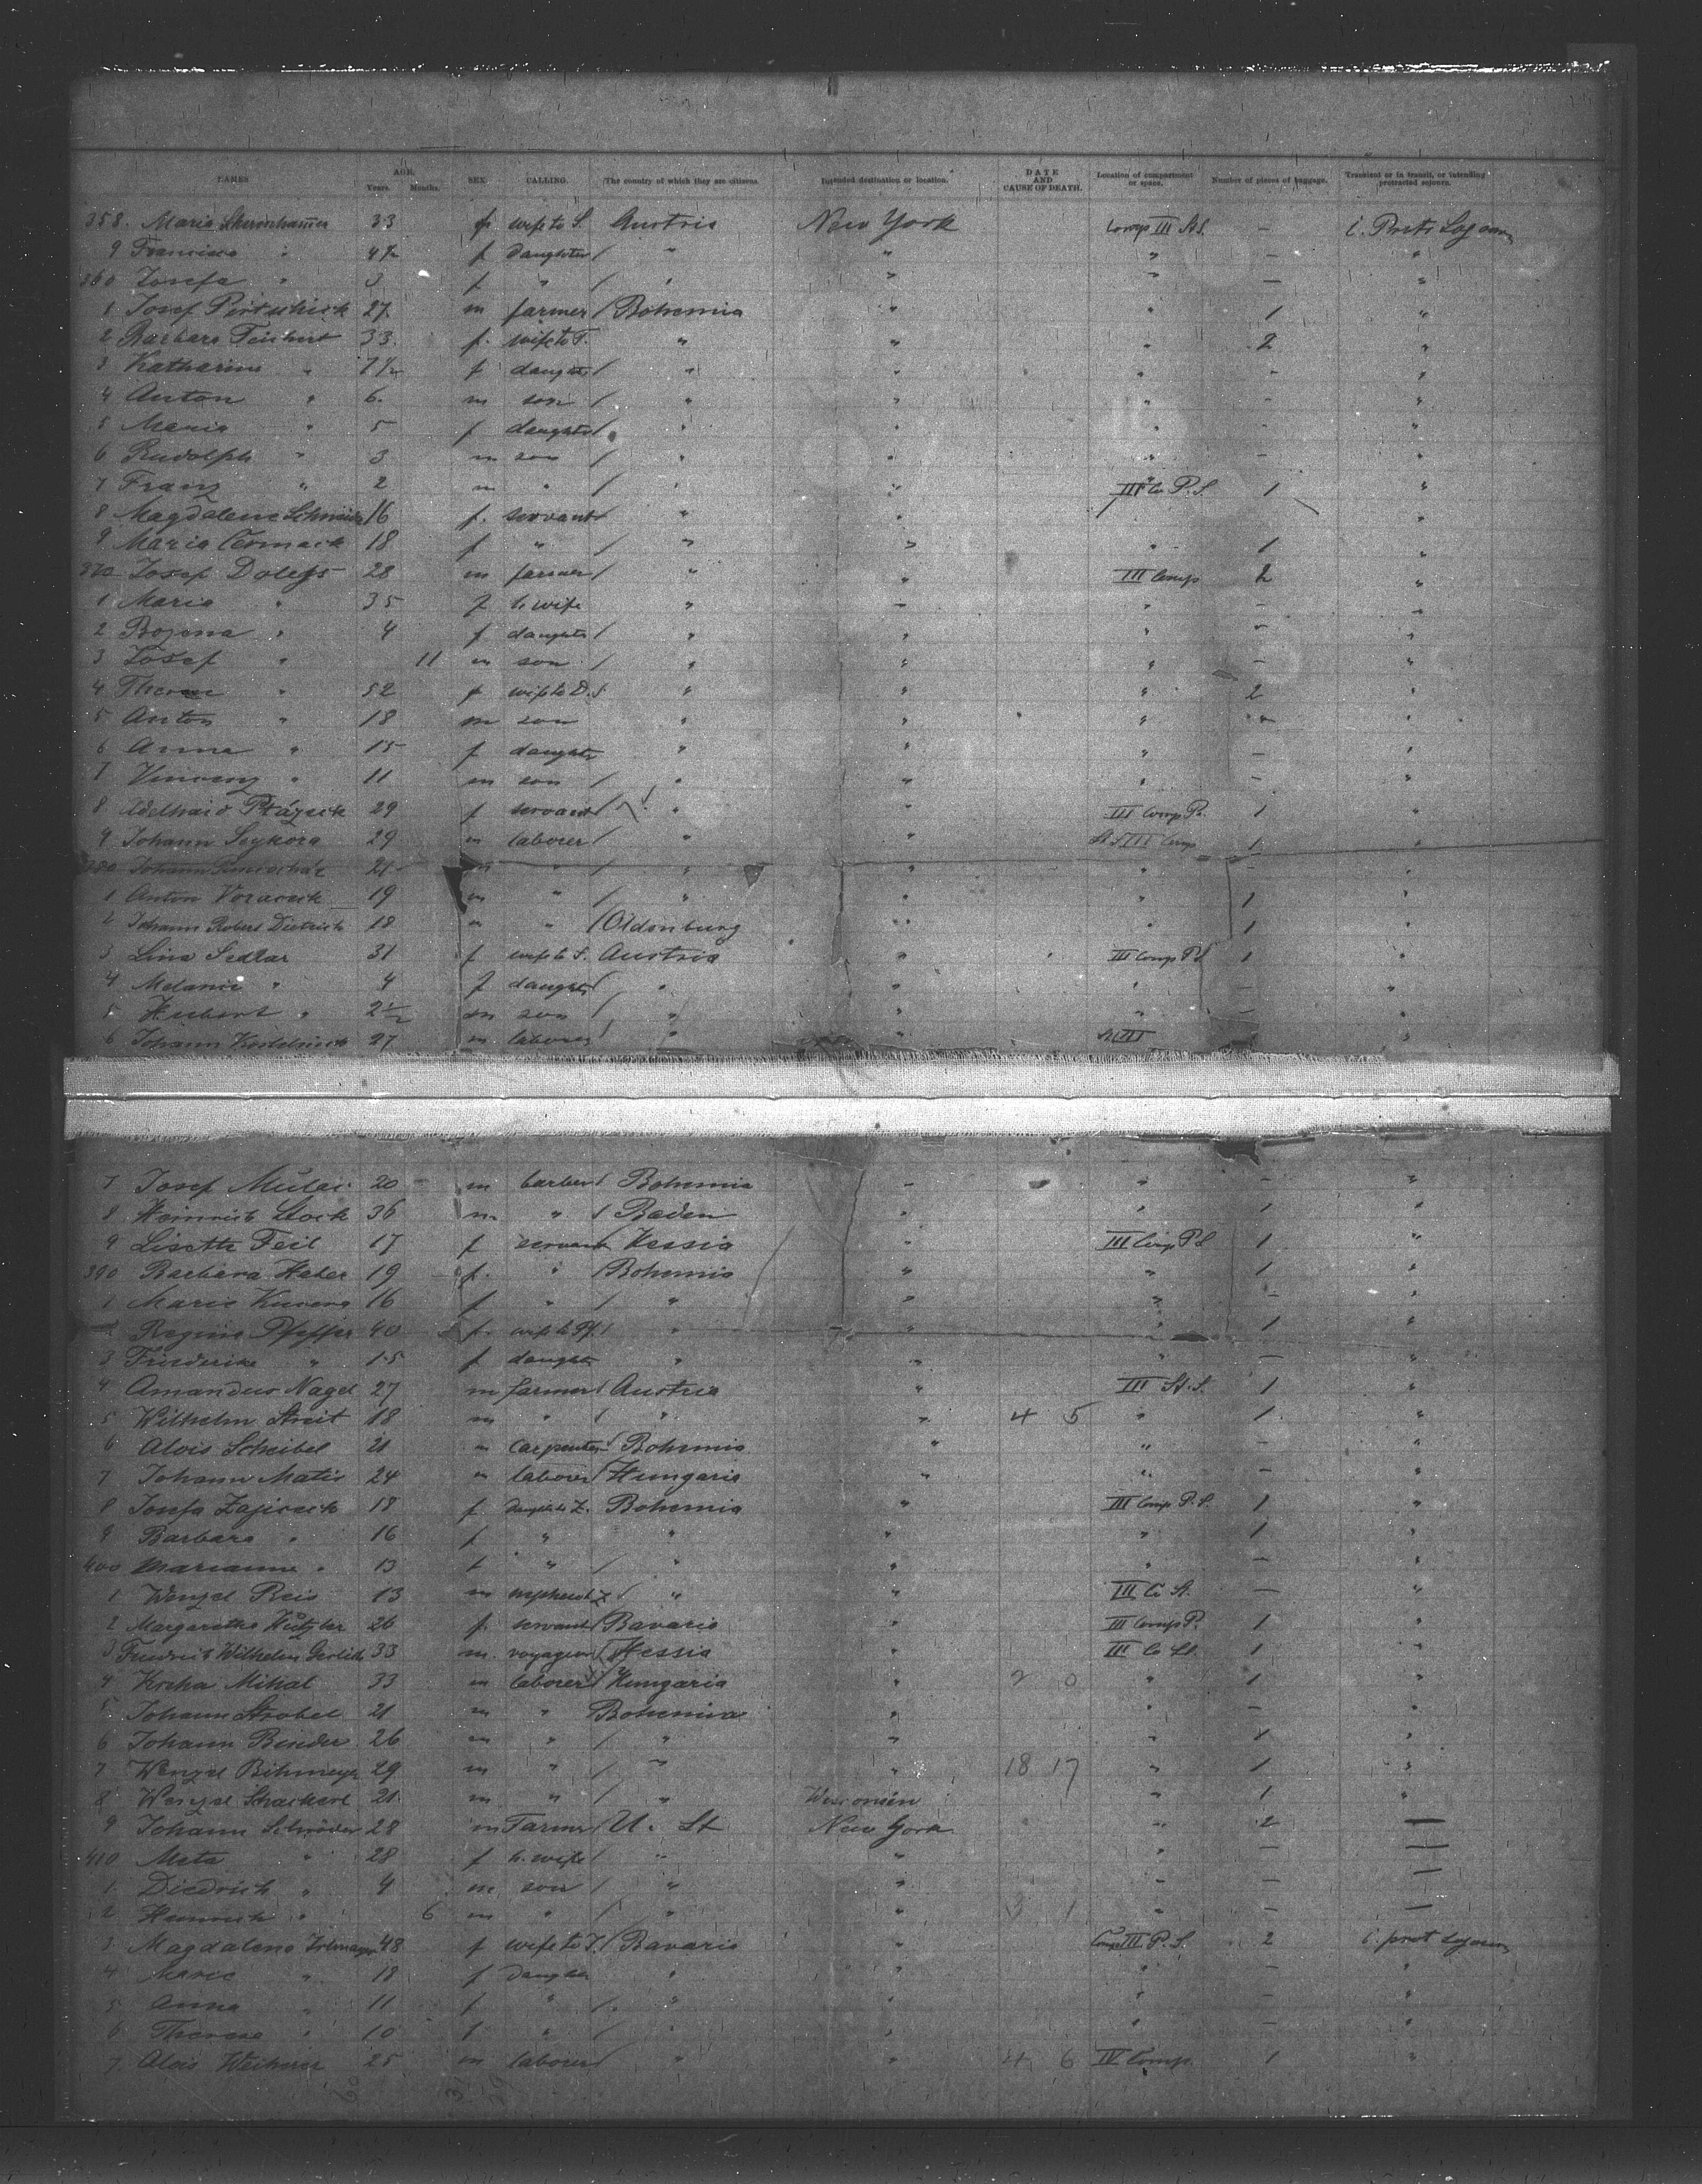 NAMES AGE. Years. Months. SEX. CALLING. The country of which they are citizens. Intended destination or location. DATE AND CAUSE OF DEATH. Location of compartment or space. Number of pieces of baggage. Transient or in transit, or intending protracted sojourn.
358. Maria 33 f wife to S. Austria New York Comp III St S. – i. Prots Sojourn
9 Francisca " 4½ f daughter / " " " – "
360 Josefa " 3 f " / " " " – "
1 Josef 27 m farmer / Bohemia " " 1 "
2 Barbara Teichert 33. f. wife to T. " " " 2 "
3 Katharina " 7½ f daughter / " " " - "
4 Anton " 6. m son / " " " - "
5 Maria " 5 f daughter / " " " - "
6 Rudolph " 3 m son / " " " – "
7 Franz " 2 m " / " " III Co P.S. 1 "
8 Magdalena Schneider 16 f. servant " " "
9 Maria Cermack 18 f " / " " " 1 "
370 Josef 28 m farmer / " " III Comp 2 "
1 Maria " 35 f h. wife " – " – "
2 Bozena " 4 f daughter / " " " – "
3 Josef " 11 m son / " " " – "
4 Therese " 52 f wife to D. " " " 2 "
5 Anton " 18 m son " " " "
6 Anna " 15 f daughter " " " – "
7 Vincenz " 11 m son / " " " – "
8 Adelhaid 29 f servant / " " III Comp P. 1 "
9 Johann Seykora 29 m laborer / " " St S III Comp 1 "
380 Johann 21 m " / " " " – "
1 Anton Voracek 19 m " / " " " 1 "
2 Johann Robert Dietrich 18 m " / Oldenburg " " 1 "
3 Lina Sedlar 31 f wife to S. Austria " III Comp P.S 1 "
4 Melanie " 4 f daughter / " " " – "
5 Hubert " 2½ m son / " " " – "
6 Johann 27 m laborer / " " St III
7 Josef 20 m barber / Bohemia – " – "
8 Heinrich Stock 36 m " / Baden " " 1 "
9 Lisette Feil 17 f servant Hessia " III Comp P.S 1 "
390 Barbara Haber 19 f. " / Bohemia " " 1 "
1 Marie 16 f " / " " " - "
2 Regina Pfeffer 40 f. wife to Pf. / " " " 1 "
3 Friederike " 15 f daughter " " " – "
4 Amandus Nagel 27 m farmer / Austria " III St. S. 1 "
5 Wilhelm Streit 18 m " / " " 4 5 " 1 "
6 Alois Scheibel 21 m carpenter / Bohemia " " – "
7 Johann Matis 24 m laborer / Hungaria " " – "
8 Josefa Zajicek 18 f daught. to Z. Bohemia " III Comp P.S. 1 "
9 Barbara " 16 f " " " " 1 "
400 Marianne " 13 f " / " " " – "
1 Wenzel Reis 13 m nephew to Z / " " III Co St. – "
2 Margaretha 26 f. servant / Bavaria " III Comp P. 1 "
3 Friedrich Wilhelm Gerlich 33 m. voyageur / Hessia " III Co St. 1 "
4 Mihal 33 m laborer / Hungaria " 2 0 " 1 "
5 Johann Strobel 21 m " Bohemia " " – "
6 Johann Binder 26 m " / " " " 1 "
7 Wenzel 29 m " / " " 18 17 " 1 "
8 Wenzel 21. m " / " Wisconsin " 1 "
9 Johann Schröder 28 m Farmer / U. St New York " 2 —
410 Meta " 28 f h. wife / " " " – —
1 Diedrich " 4 m son / " " " – —
2 Heinrich " 6 m " / " " 3 1 " – —
3 Magdalena 48 f wife to I. / Bavaria " Comp III P.S. 2 i. prot Sojourn
4 Marie " 18 f daughter " " " – "
5 Anna " 11 f " / " " " – "
6 Therese " 10 f " / " " " – "
7 Alois 25 m laborer / " " 4 6 IV Comp. 1 "